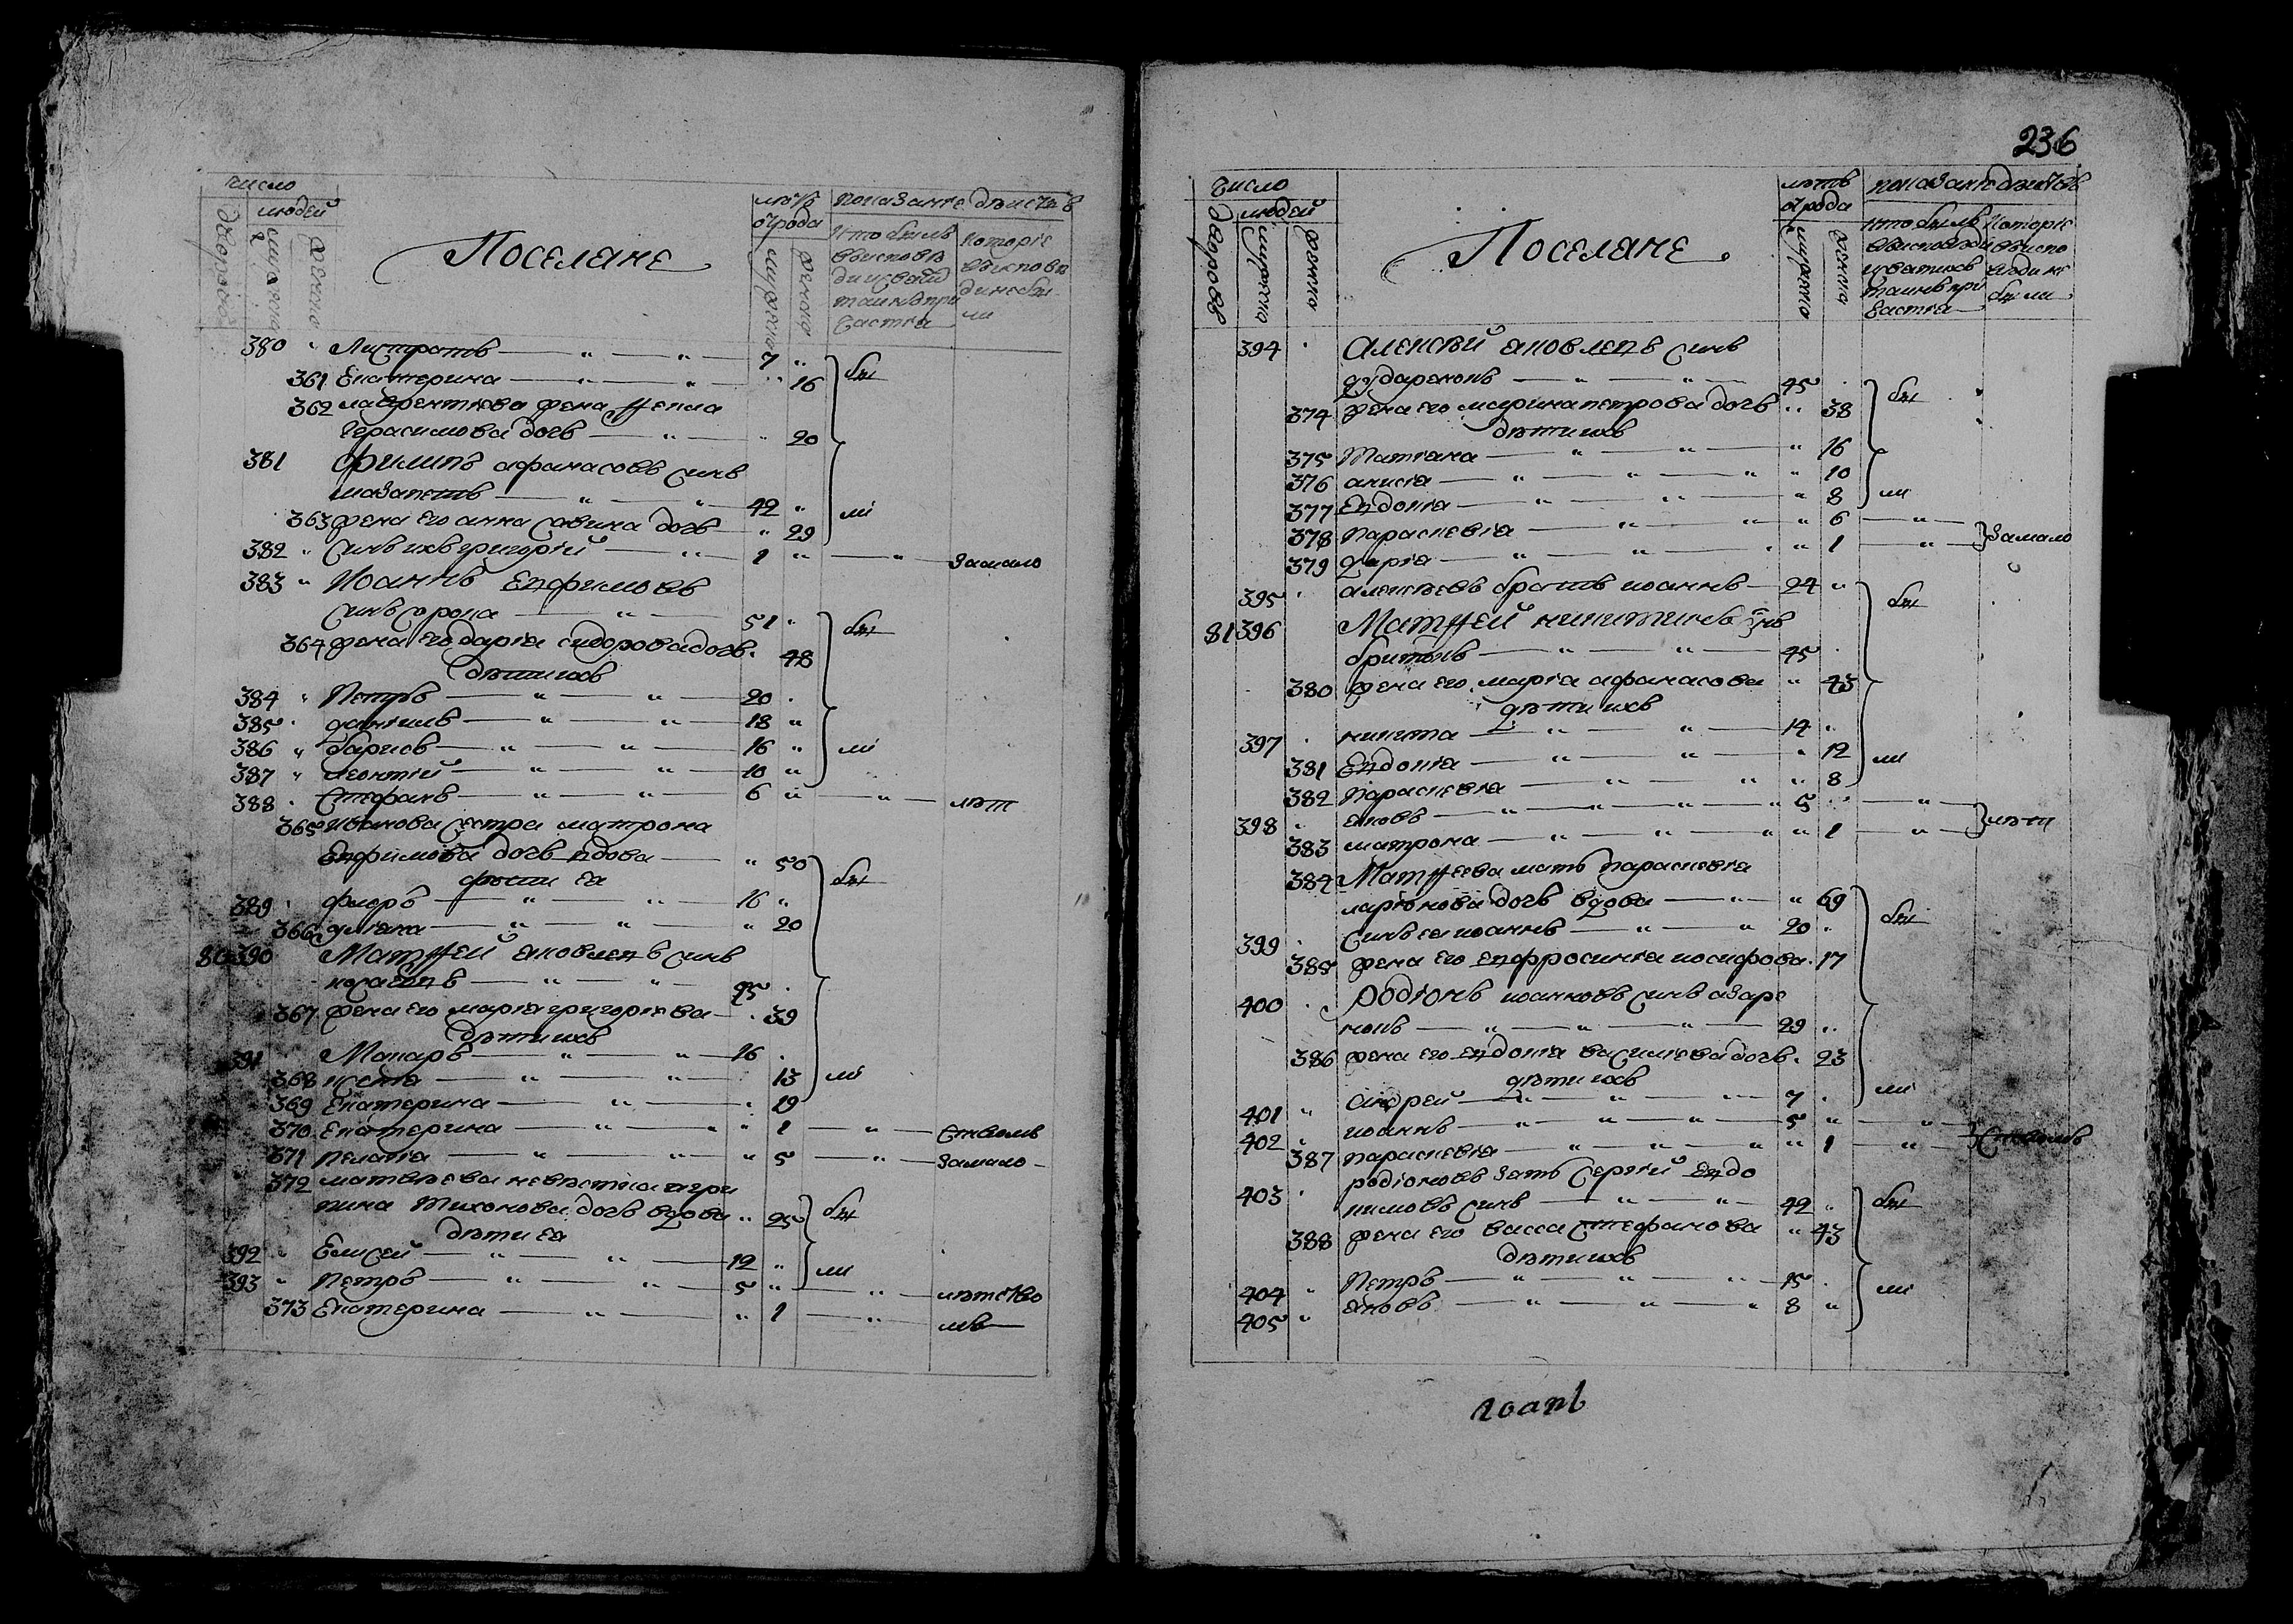 число
людей
дворовъ
мужеска
женска
Поселяне
лѣтъ
ѿ рода
мужеска
женска
показание дѣйствъ
кто былъ
въ исповѣ
ди и святи
таинъ при
частия
которіе
въ исповѣ
ди не бы
ли
380 " Листратъ — " — " — 7 "
361 Екатерина — " — " " 16
бы
362 лаврентиева жена Ѳекла
Герасимова дочь — " — " 20
381 Филипъ афанасовъ синъ
мазапетъ — " — " — 42 "
ли
363 жена его анна савина дочь — " 29
382 " Синъ ихъ григорій — " — 1 " — " — за мало
383 " Иоаннъ Евфимовъ
синъ сорока — " — 51 "
364 жена его дария сидорова дочь " 48
бы
дѣти ихъ
384 " Петръ — " — " — 20 "
385 " даніилъ — " — " — 18 "
386 " барисъ — " — " — 16 "
ли
387 " леонтій — " — " — 10 "
388 " Стефанъ — " — " — 6 " — " — лѣт
365 иванова сестра матрона
Евфимова дочь вдова — " 50
бы
дѣти ея
389 " флоръ — " — " — 16 "
366 улиана — " — " — " 20
80 390 Матѳей яковлевъ синъ
— " — " — 45 "
367 жена его мария григориева — " 39
дѣти ихъ
391 " Макаръ — " — " — 16 "
368 — " — " — 13
ли
369 Екатерина — " — " 19
370 Екатерина — " — " " 1 — " — ством
371 Пелагия — " — " — " 5 — " — за мало
372 матвѣева невѣстка агри
пина Тихонова дочь вдова " 25
бы
дѣти ея
392 " Елисей — " — " — 12 "
ли
393 " Петръ — " — " — 5 " — " — лѣтство
373 Екатерина — " — " 1 — " — мъ
236
число
людей
дворовъ
мужеска
женска
Поселяне
лѣтъ
ѿ рода
мужеска
женска
показание дѣйствъ
кто былъ
въ исповѣди
и святихъ
таинъ при
частия
которіе
въ испо
вѣди не
были
394 " Алексѣй яковлевъ синъ
дударенокъ — " — " — 45 "
бы
374 жена его марина петрова дочь " 38
дѣти ихъ
375 Татіана — " — " — " 16
376 анисія — " — " — " " 10
377 Евдокія — " — " — " 8
ли
378 Параскевія — " — " " 6 — " —
за мало
379 дарія — " — " — " " 1 — " —
395 " алексѣевъ братъ иоаннъ — 24 "
бы
81 396 Матѳей никитинъ синъ
бритокъ — " — " — 45 "
380 жена его мария афанасова " 43
дѣти ихъ
397 " никита — " — " — 14 "
381 Евдокія — " — " — " 12
ли
382 Параскевія — " — " " 8
398 " яковъ — " — " — " 5 " — " —
лѣти
383 матрона — " — " — " " 1 — " —
384 Матѳеева мать параскевія
ларіонова дочь вдова — " — " 69
бы
399 " Синъ ея иоаннъ — " — " 20 "
385 жена его евфросинія иосифова " 17
400 " Родіонъ иоанновъ синъ азаре
нокъ — " — " — " — 29 "
386 жена его евдокія василіева дочь " 23
дѣти ихъ
ли
401 " андрей — " — " — " 7 "
402 " иоаннъ — " — " — " 5 " — "
ством
387 параскевія — " — " — " " 1 — "
403 " родіоновъ зять Сергій Евдо
кимовъ синъ — " — " — 42 "
бы
388 жена его васса стефанова " 43
дѣти ихъ
404 " Петръ — " — " — " 15 "
ли
405 " яковъ — " — " — " 8 "
иоанъ